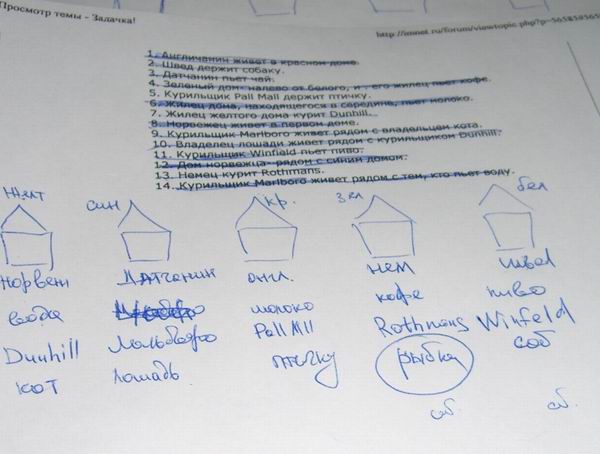 Просмотр темы - Задачка!
http://innet.ru/forum/viewtopic.php?p=565859565
1. Англичанин живет в красном доме.
2. Швед держит собаку.
3. Датчанин пьет чай.
4. Зеленый дом- налево от белого, и его жилец пьет кофе.
5. Курильщик Pall Mall держит птичку.
6. Жилец дома, находящегося в середине, пьет молоко.
7. Жилец желтого дома курит Dunhill.
8. Норвежец живет в первом доме.
9. Курильщик Marlboro живет рядом с владельцем кота.
10. Владелец лошади живет рядом с курильщиком Dunhill.
11. Курильщик Winfield пьет пиво.
12. Дом норвежца- рядом с синим домом.
13. Немец курит Rothmans.
14. Курильщик Marlboro живет рядом с тем, кто пьет воду.
желт син кр. зел бел
Норвеж Датчанин англ. нем швед
вода молоко кофе пиво
Dunhill Мальборо Pall Mll Rothmans Winfeld
кот лошадь птичку рыбка соб